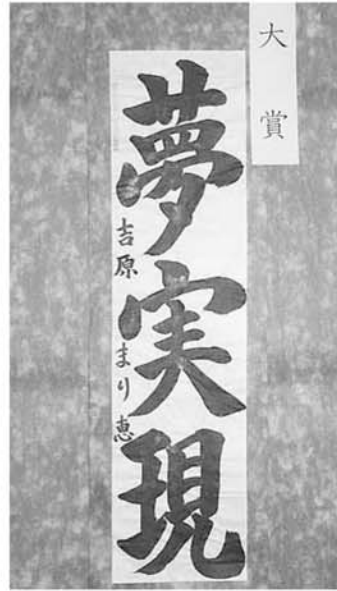 大賞
夢実現
吉原まり恵